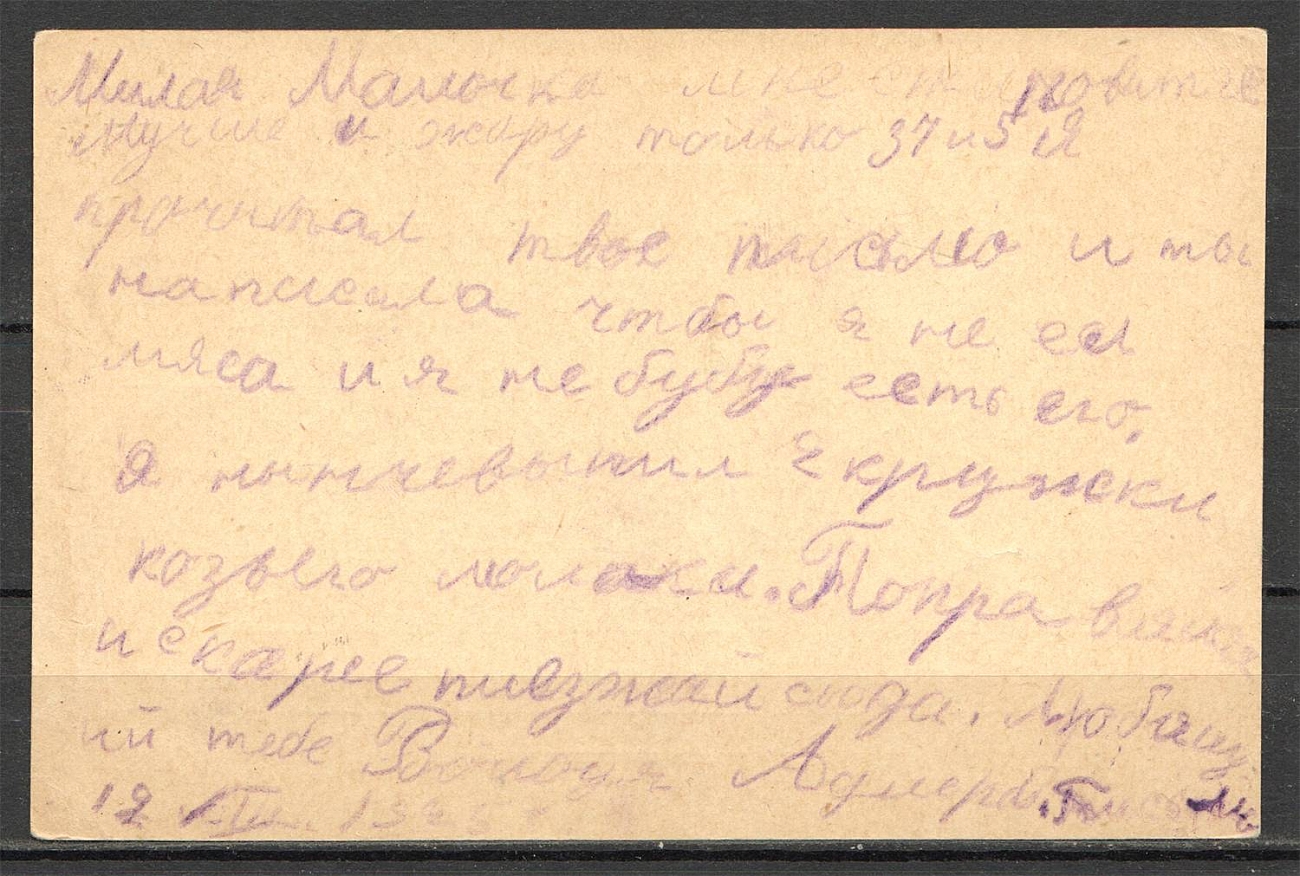 Милая Мамочка мне становится
лучше и жару только 37 и 5 Я
прочитал твое письмо и ты
написала чтобы я не ел
мяса и я не буду есть его.
Я нынче выпил 2 кружки
козьего молока. Поправляйся
и скарее пиезжай сюда. Любящ
ий тебе
12